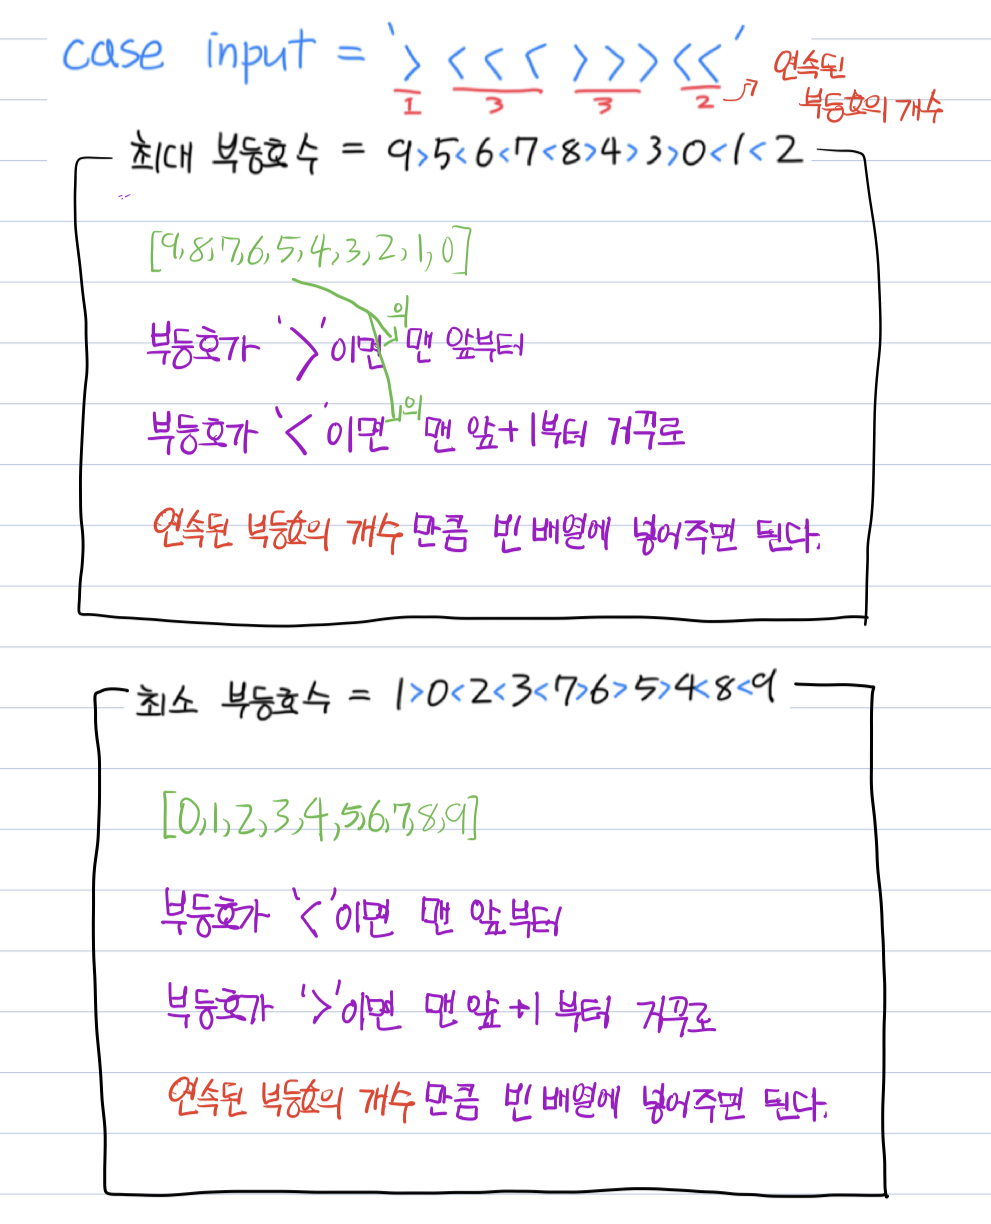 case input = '> < < < > > > < <'
1 3 3 2 연속된
부등호의 개수
최대 부등호수 = 9>5<6<7<8>4>3>0<1<2
[9,8,7,6,5,4,3,2,1,0]
의
부등호가 '>'이면 맨 앞부터
의
부등호가 '<'이면 맨 앞+1부터 거꾸로
연속된 부등호의 개수 만큼 빈 배열에 넣어주면 된다.
최소 부등호수 = 1>0<2<3<7>6>5>4<8<9
[0,1,2,3,4,5,6,7,8,9]
부등호가 '<'이면 맨 앞부터
부등호가 '>'이면 맨 앞+1 부터 거꾸로
연속된 부등호의 개수 만큼 빈 배열에 넣어주면 된다.